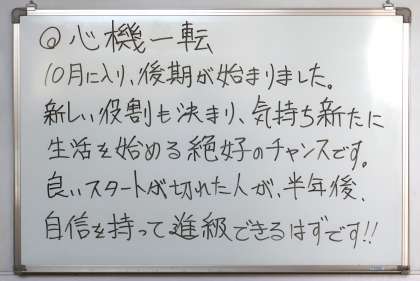 ◎心機一転
10月に入り、後期が始まりました。
新しい役割も決まり、気持ち新たに
生活を始める絶好のチャンスです。
良いスタートが切れた人が、半年後、
自信を持って進級できるはずです!!